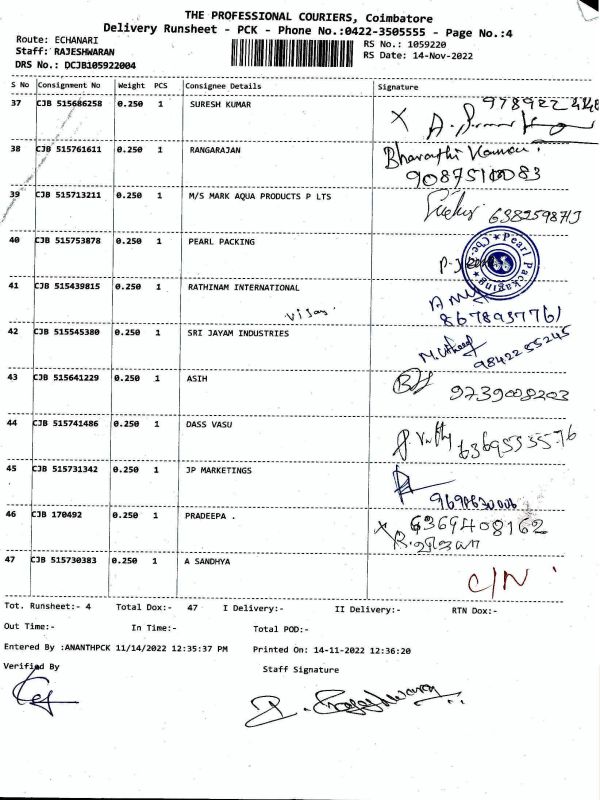 THE PROFESSIONAL COURIERS, Coimbatore
Delivery Runsheet - PCK - Phone No.:0422-3505555 - Page No.:4
Route: ECHANARI
Staff: RAJESHWARAN
DRS No.: DCJB105922004
RS No.: 1059220
RS Date: 14-Nov-2022
S No Consignment No Weight PCS Consignee Details Signature
37 CJB 515686258 0.250 1 SURESH KUMAR
38 CJB 515761611 0.250 1 RANGARAJAN
Bharathi Kannan
39 CJB 515713211 0.250 1 M/S MARK AQUA PRODUCTS P LTS
40 CJB 515753878 0.250 1 PEARL PACKING
Pearl Packaging Cbe
41 CJB 515439815 0.250 1 RATHINAM INTERNATIONAL
8678937761
42 CJB 515545380 0.250 1 SRI JAYAM INDUSTRIES
9842255245
43 CJB 515641229 0.250 1 ASIH
9739008203
44 CJB 515741486 0.250 1 DASS VASU
6369533576
45 CJB 515731342 0.250 1 JP MARKETINGS
46 CJB 170492 0.250 1 PRADEEPA .
6369408162
47 CJB 515730383 0.250 1 A SANDHYA
C/N
Tot. Runsheet:- 4 Total Dox:- 47 I Delivery:- II Delivery:- RTN Dox:-
Out Time:- In Time:- Total POD:-
Entered By :ANANTHPCK 11/14/2022 12:35:37 PM Printed On: 14-11-2022 12:36:20
Verified By Staff Signature